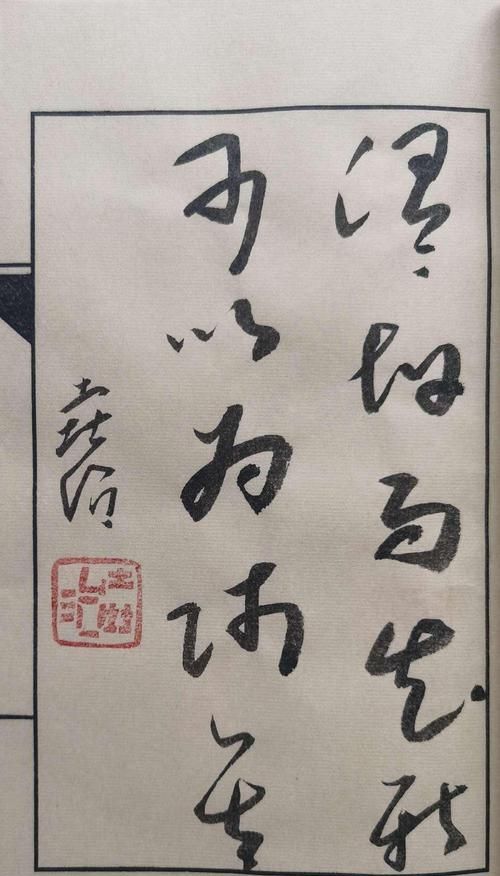 温故而知新
可以為師矣